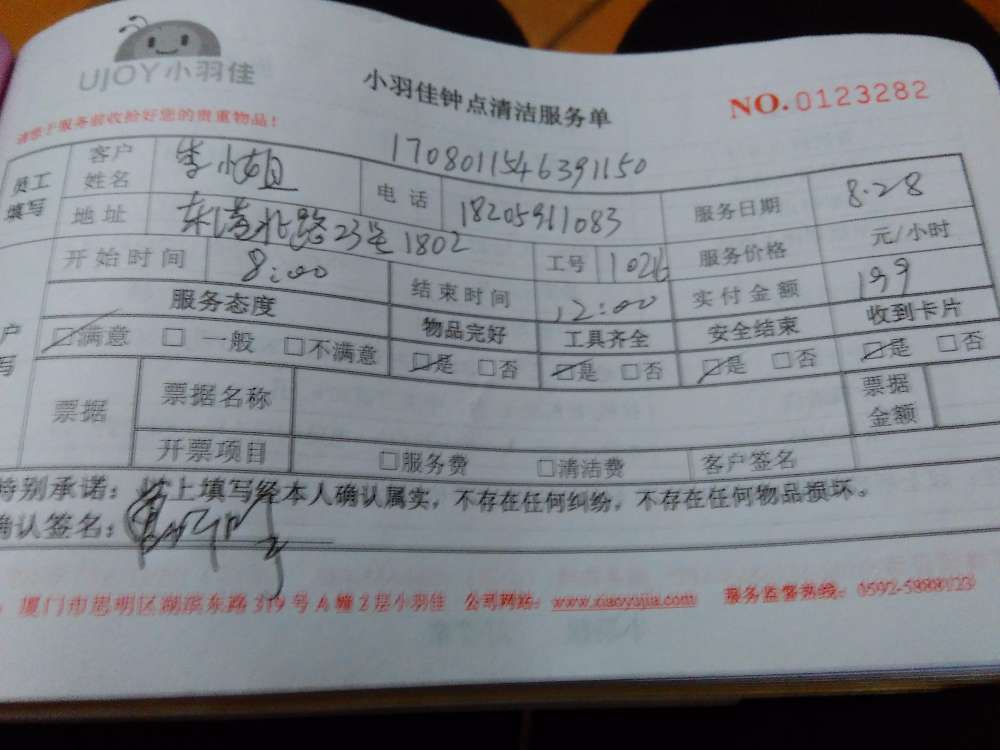 UJOY小羽佳
小羽佳钟点清洁服务单
NO.0123282
请您于服务前收拾好您的贵重物品！
1708011546391150
员工填写 客户姓名 李小姐 电话 18205911083 服务日期 8.28
地址 东渡北路23号1802 工号 1026 服务价格 元/小时
开始时间 8:00 结束时间 12:00 实付金额 199
服务态度 物品完好 工具齐全 安全结束 收到卡片
户写 ☑满意 □一般 □不满意 ☑是 □否 ☑是 □否 ☑是 □否 ☑是 □否
票据 票据名称 票据金额
开票项目 □服务费 □清洁费 客户签名
特别承诺：以上填写经本人确认属实，不存在任何纠纷，不存在任何物品损坏。
确认签名：
厦门市思明区湖滨东路319号A幢2层小羽佳 公司网站：www.xiaoyujia.com 服务监督热线：0592-5888123